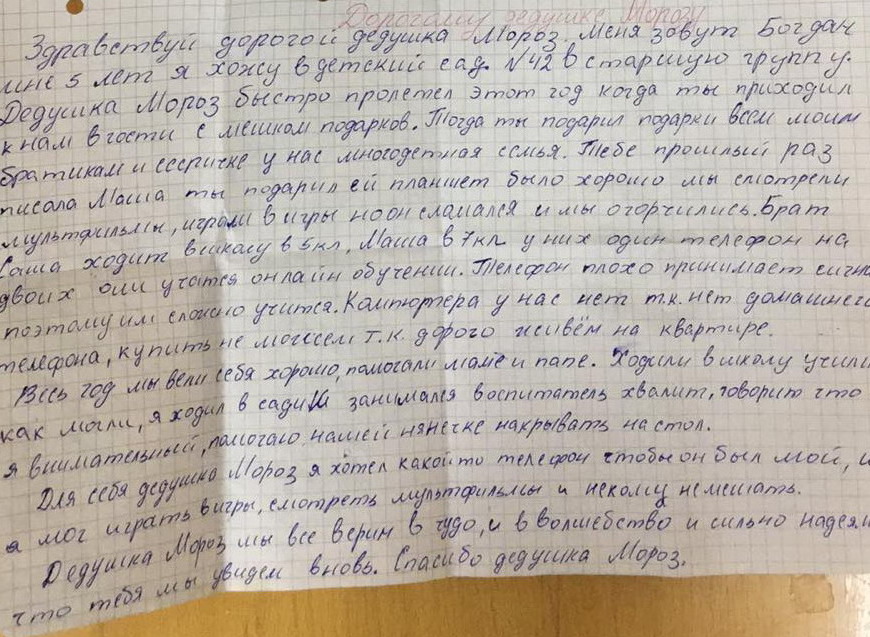 Дорогому дедушке Морозу
Здравствуй дорогой дедушка Мороз. Меня зовут Богдан
мне 5 лет я хожу в детский сад. N42 в старшую группу.
Дедушка Мороз быстро пролетел этот год когда ты приходил
к нам в гости с мешком подарков. Тогда ты подарил подарки всем моим
братикам и сестричке у нас многодетная семья. Тебе прошлый раз
писала Маша ты подарил ей планшет было хорошо мы смотрели
мультфильмы, играли в игры но он сламался и мы огорчились. Брат
Саша ходит вшколу в 5кл, Маша в 7кл у них один телефон на
двоих они учатся онлайн обучении. Телефон плохо принимает сигна
поэтому им сложно учится. Компютера у нас нет т.к. нет домашнего
телефона, купить не можем т.к. дорого живём на квартире.
Весь год мы вели себя хорошо, помогали маме и папе. Ходили в школу учили
как могли, я ходил в садик занимался воспитатель хвалит, говорит что
я внимательный, помогаю нашей нянечке накрывать на стол.
Для себя дедушка Мороз я хотел какой то телефон чтобы он был мой, и
я мог играть в игры, смотреть мультфильмы и некому немешать.
Дедушка Мороз мы все верим в чудо, и в волшебство и сильно надеем
что тебя мы увидем вновь. Спасибо дедушка Мороз.